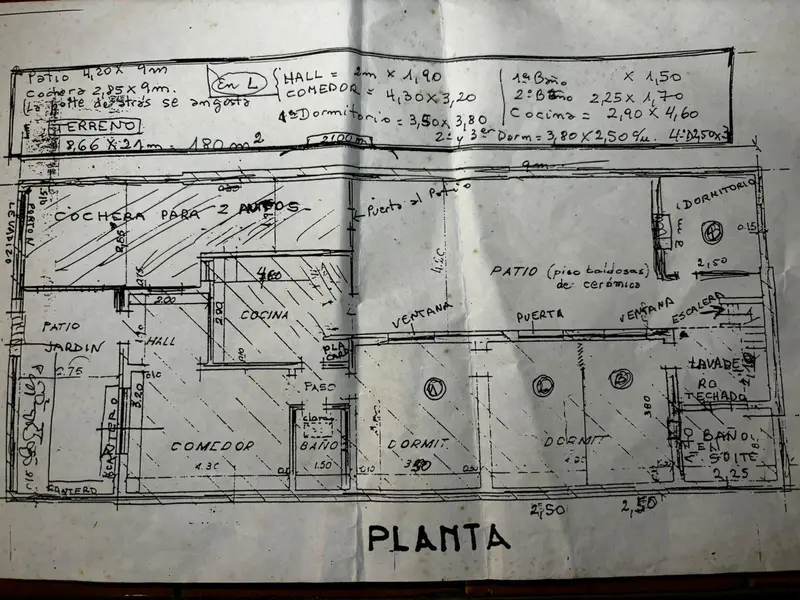 Patio 4,20 x 9m
Cochera 2,85 x 9m.
(La parte de atrás se angosta
TERRENO
8,66 x 21m = 180 m²
En L
HALL = 2m x 1,90
COMEDOR = 4,30 x 3,20
1ª Dormitorio = 3,50 x 3,80
1º Baño x 1,50
2º Baño 2,25 x 1,70
Cocina = 2,90 x 4,60
2º y 3er Dorm = 3,80 x 2,50
4º D 2,50 x
21.00 m
9m
PORTON
LEVADIZO
COCHERA PARA 2 AUTOS
2.85
Puerta al Patio
PATIO (piso baldosas)
de cerámica
DORMITORIO
4
3 m
0.15
2,50
PATIO
JARDIN
2.75
2.00
HALL
4.60
2.90
COCINA
PLA
CARD
VENTANA
PUERTA
VENTANA
ESCALERA
LAVADE
RO
TECHADO
3.20
PASO
claro
COMEDOR
4.30
BAÑO
1.50
1
DORMIT
3.50
2
3
DORMIT
3.80
BAÑO
EN
SUITE
2,25
CANTERO
CANTERO
2,50
2,50
PLANTA